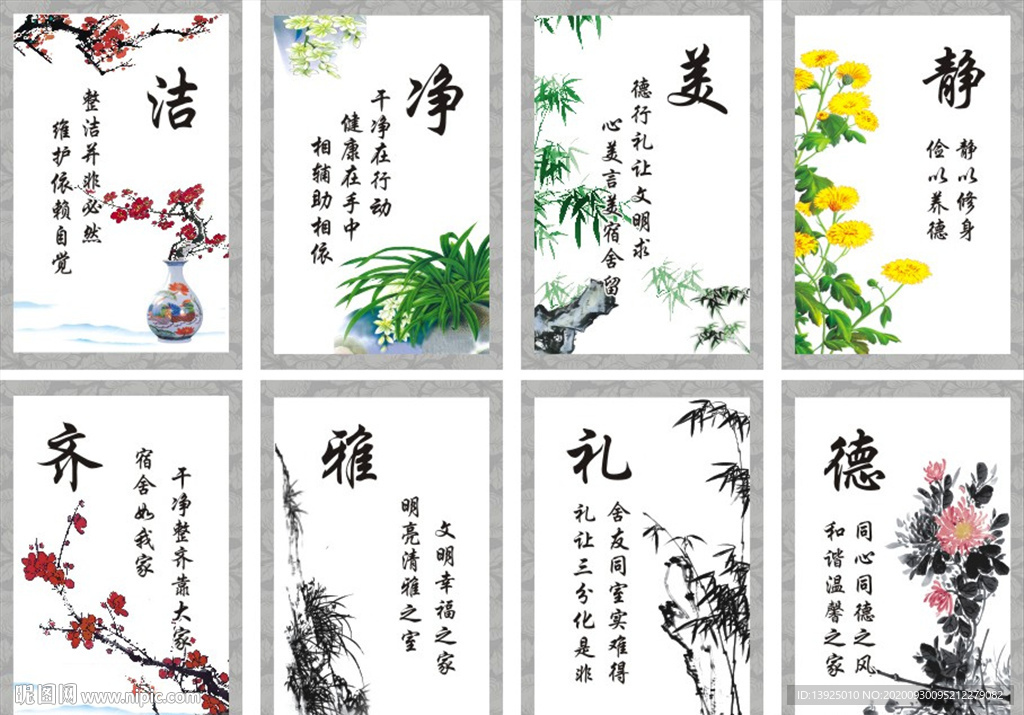 洁
整洁并非必然
维护依赖自觉
净
干净在行动
健康在手中
相辅助相依
美
德行礼让文明求
心美言美宿舍留
静
静以修身
俭以养德
齐
宿舍如我家
干净整齐靠大家
雅
文明幸福之家
明亮清雅之室
礼
舍友同室实难得
礼让三分化是非
德
同心同德之风
和谐温馨之家
昵图网 www.nipic.com
ID:13925010 NO:20200930095212279082